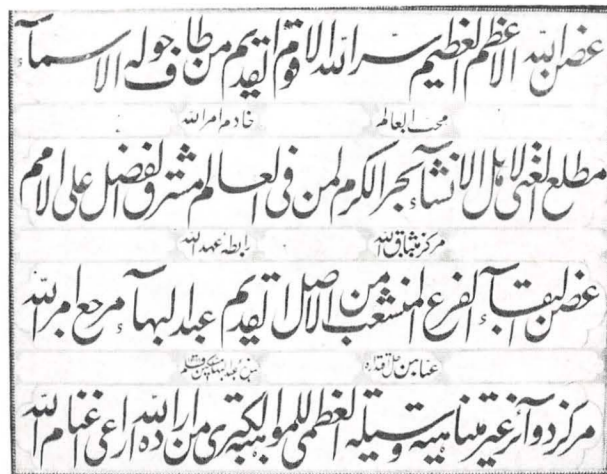 غصن الله الاعظم العظيم سر الله الاقوم القديم من طاف حوله الاسمآء
محب العالم خادم امر الله
مطلع الغنى لاهل الانشآء بحر الكرم لمن فى العالم مشرق الفضل على الامم
مركز ميثاق الله رابطهٔ عهد الله
غصن البقآء الفرع المنشعب من الاصل القديم عبد البهآء مرجع امر الله
مركز دوآئر غير متناهيه وسيلة العظمى الموهبة الكبرى من اراده الله راعى اغنام الله